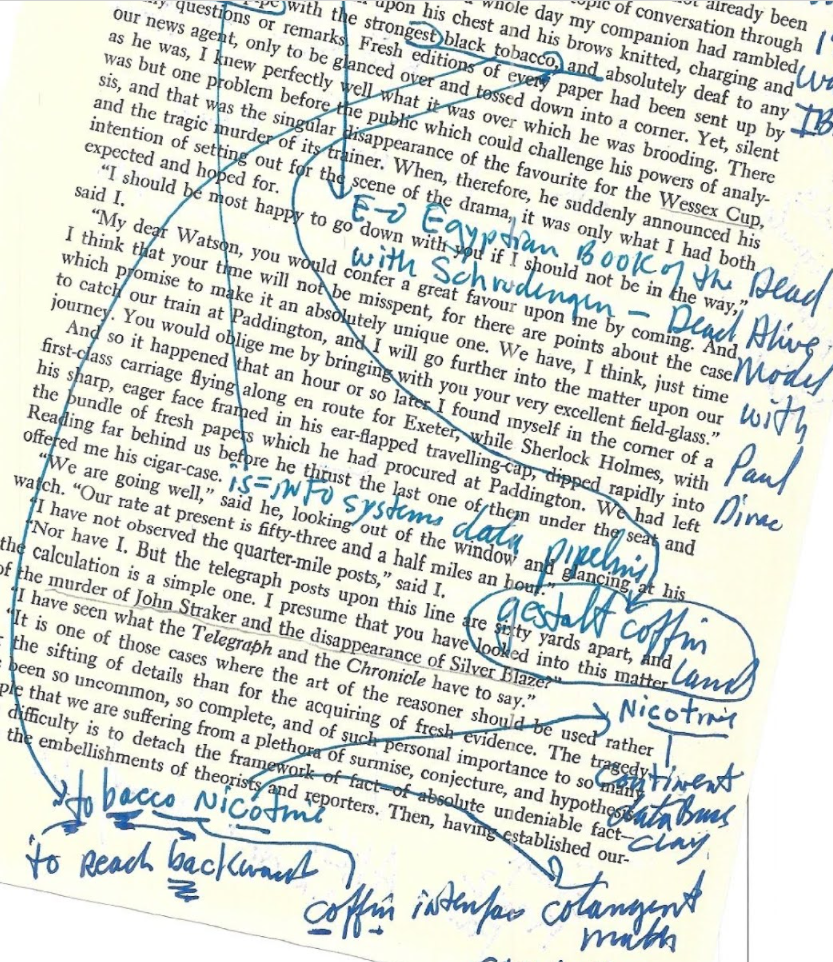 already been
whole day my companion had rambled
pic of conversation through
upon his chest and his brows knitted, charging and
with the strongest black tobacco, and absolutely deaf to any
questions or remarks. Fresh editions of every paper had been sent up by
our news agent, only to be glanced over and tossed down into a corner. Yet, silent
as he was, I knew perfectly well what it was over which he was brooding. There
was but one problem before the public which could challenge his powers of analy-
sis, and that was the singular disappearance of the favourite for the Wessex Cup,
and the tragic murder of its trainer. When, therefore, he suddenly announced his
intention of setting out for the scene of the drama, it was only what I had both
expected and hoped for.
"I should be most happy to go down with you if I should not be in the way,"
said I.
E-o Egyptian Book of the Dead
with Schrodinger – Dead Alive
Model
with
Paul
Dirac
"My dear Watson, you would confer a great favour upon me by coming. And
I think that your time will not be misspent, for there are points about the case
which promise to make it an absolutely unique one. We have, I think, just time
to catch our train at Paddington, and I will go further into the matter upon our
journey. You would oblige me by bringing with you your very excellent field-glass."
And so it happened that an hour or so later I found myself in the corner of a
first-class carriage flying along en route for Exeter, while Sherlock Holmes, with
his sharp, eager face framed in his ear-flapped travelling-cap, dipped rapidly into
the bundle of fresh papers which he had procured at Paddington. We had left
Reading far behind us before he thrust the last one of them under the seat and
offered me his cigar-case.
is=info systems data pipeline
"We are going well," said he, looking out of the window and glancing at his
watch. "Our rate at present is fifty-three and a half miles an hour."
"I have not observed the quarter-mile posts," said I.
"Nor have I. But the telegraph posts upon this line are sixty yards apart, and
the calculation is a simple one. I presume that you have looked into this matter
of the murder of John Straker and the disappearance of Silver Blaze?"
gestalt coffin
land
"I have seen what the Telegraph and the Chronicle have to say."
"It is one of those cases where the art of the reasoner should be used rather
the sifting of details than for the acquiring of fresh evidence. The tragedy
been so uncommon, so complete, and of such personal importance to so many
ple that we are suffering from a plethora of surmise, conjecture, and hypothes
difficulty is to detach the framework of fact—of absolute undeniable fact—
the embellishments of theorists and reporters. Then, having established our-
Nicotine
continent
database
clay
tobacco Nicotine
to reach backward
coffin interfas cotangent
math